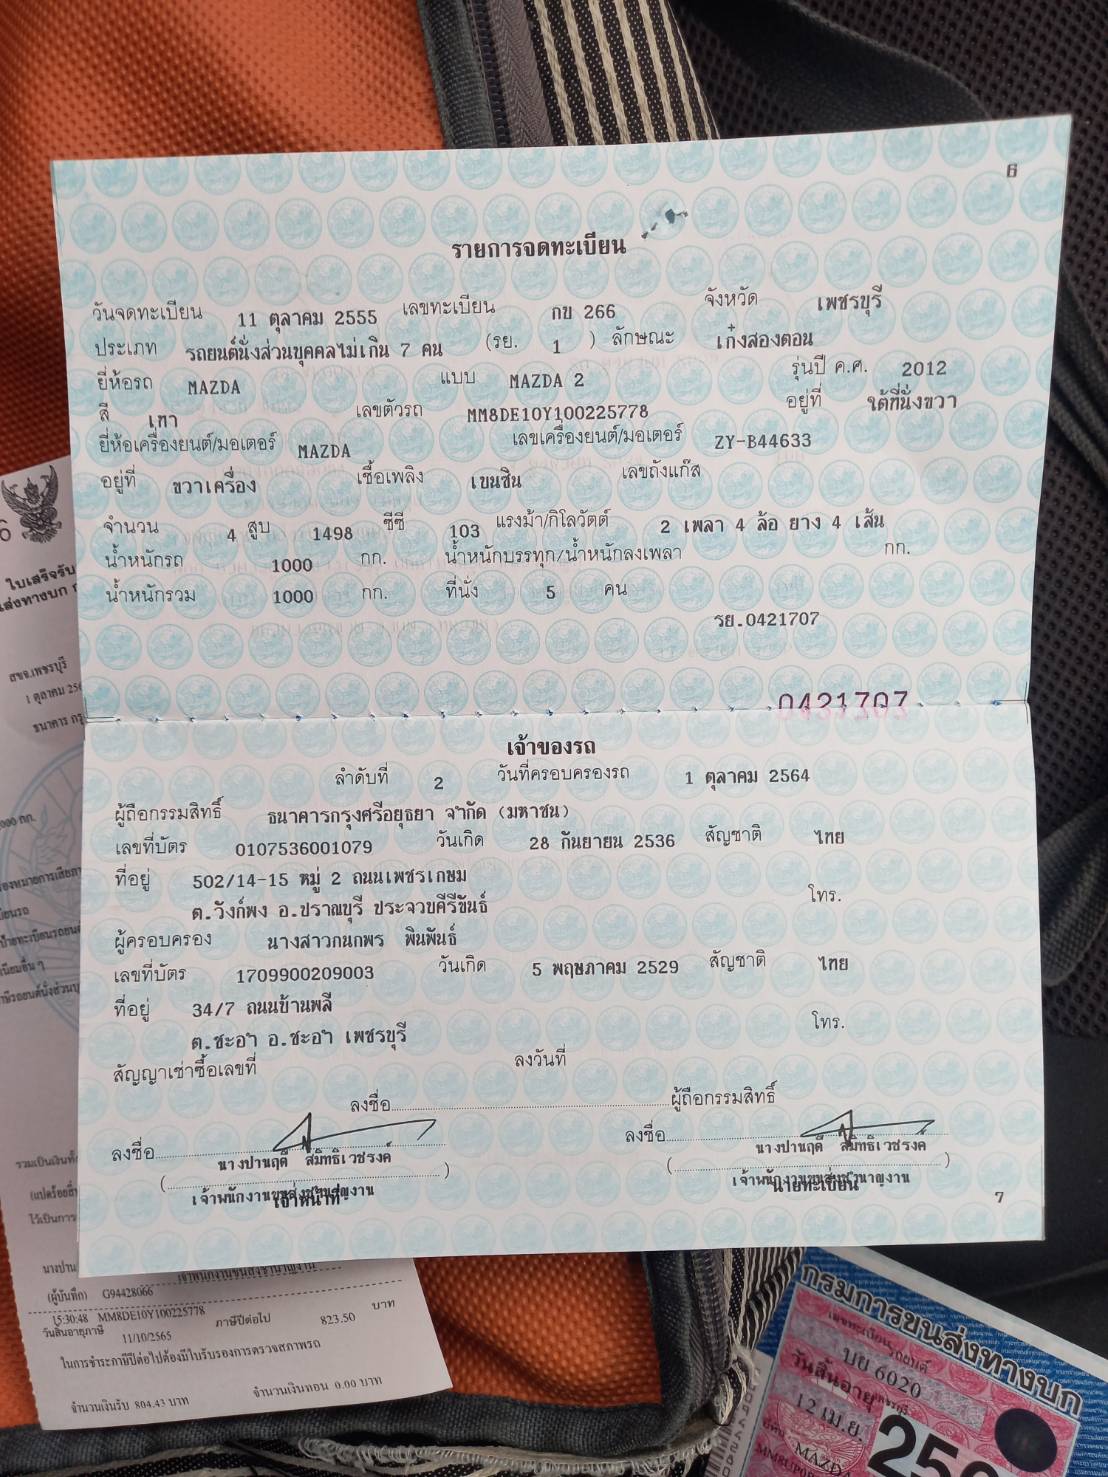 6
รายการจดทะเบียน
วันจดทะเบียน 11 ตุลาคม 2555 เลขทะเบียน กข 266 จังหวัด เพชรบุรี
ประเภท รถยนต์นั่งส่วนบุคคลไม่เกิน 7 คน (รย. 1 ) ลักษณะ เก๋งสองตอน
ยี่ห้อรถ MAZDA แบบ MAZDA 2 รุ่นปี ค.ศ. 2012
สี เทา เลขตัวรถ MM8DE10Y100225778 อยู่ที่ ใต้ที่นั่งขวา
ยี่ห้อเครื่องยนต์/มอเตอร์ MAZDA เลขเครื่องยนต์/มอเตอร์ ZY-B44633
อยู่ที่ ขวาเครื่อง เชื้อเพลิง เบนซิน เลขถังแก๊ส
จำนวน 4 สูบ 1498 ซีซี 103 แรงม้า/กิโลวัตต์ 2 เพลา 4 ล้อ ยาง 4 เส้น
น้ำหนักรถ 1000 กก. น้ำหนักบรรทุก/น้ำหนักลงเพลา กก.
น้ำหนักรวม 1000 กก. ที่นั่ง 5 คน
รย.0421707
0421707
เจ้าของรถ
ลำดับที่ 2 วันที่ครอบครองรถ 1 ตุลาคม 2564
ผู้ถือกรรมสิทธิ์ ธนาคารกรุงศรีอยุธยา จำกัด (มหาชน)
เลขที่บัตร 0107536001079 วันเกิด 28 กันยายน 2536 สัญชาติ ไทย
ที่อยู่ 502/14-15 หมู่ 2 ถนนเพชรเกษม
โทร.
ต.วังก์พง อ.ปราณบุรี ประจวบคีรีขันธ์
ผู้ครอบครอง นางสาวกนกพร พินพันธ์
เลขที่บัตร 1709900209003 วันเกิด 5 พฤษภาคม 2529 สัญชาติ ไทย
ที่อยู่ 34/7 ถนนข้านพลี
โทร.
ต.ชะอำ อ.ชะอำ เพชรบุรี
สัญญาเช่าซื้อเลขที่ ลงวันที่
ลงชื่อ ผู้ถือกรรมสิทธิ์
ลงชื่อ ลงชื่อ
นางปานฤดี สมิทธิเวชรงค์ นางปานฤดี สมิทธิเวชรงค์
( ) ( )
เจ้าพนักงานขนส่งชำนาญงาน เจ้าพนักงานขนส่งชำนาญงาน
เจ้าหน้าที่ นายทะเบียน
7
6
ใบเสร็จรับ
สขจ.เพชรบุรี
1 ตุลาคม 256
ธนาคาร กรุ
000 กก.
นางปาน
เจ้าพนักงานขนส่งชำนาญงาน
(ผู้บันทึก) G94428066
15:30:48 MM8DE10Y100225778
วันสิ้นอายุภาษี 11/10/2565 ภาษีปีต่อไป 823.50 บาท
ในการชำระภาษีปีต่อไปต้องมีใบรับรองการตรวจสภาพรถ
จำนวนเงินรับ 804.43 บาท จำนวนเงินทอน 0.00 บาท
กรมการขนส่งทางบก
เลขทะเบียนรถยนต์
บย 6020
เพชรบุรี
วันสิ้นอายุ
12 เม.ย.
MAZD